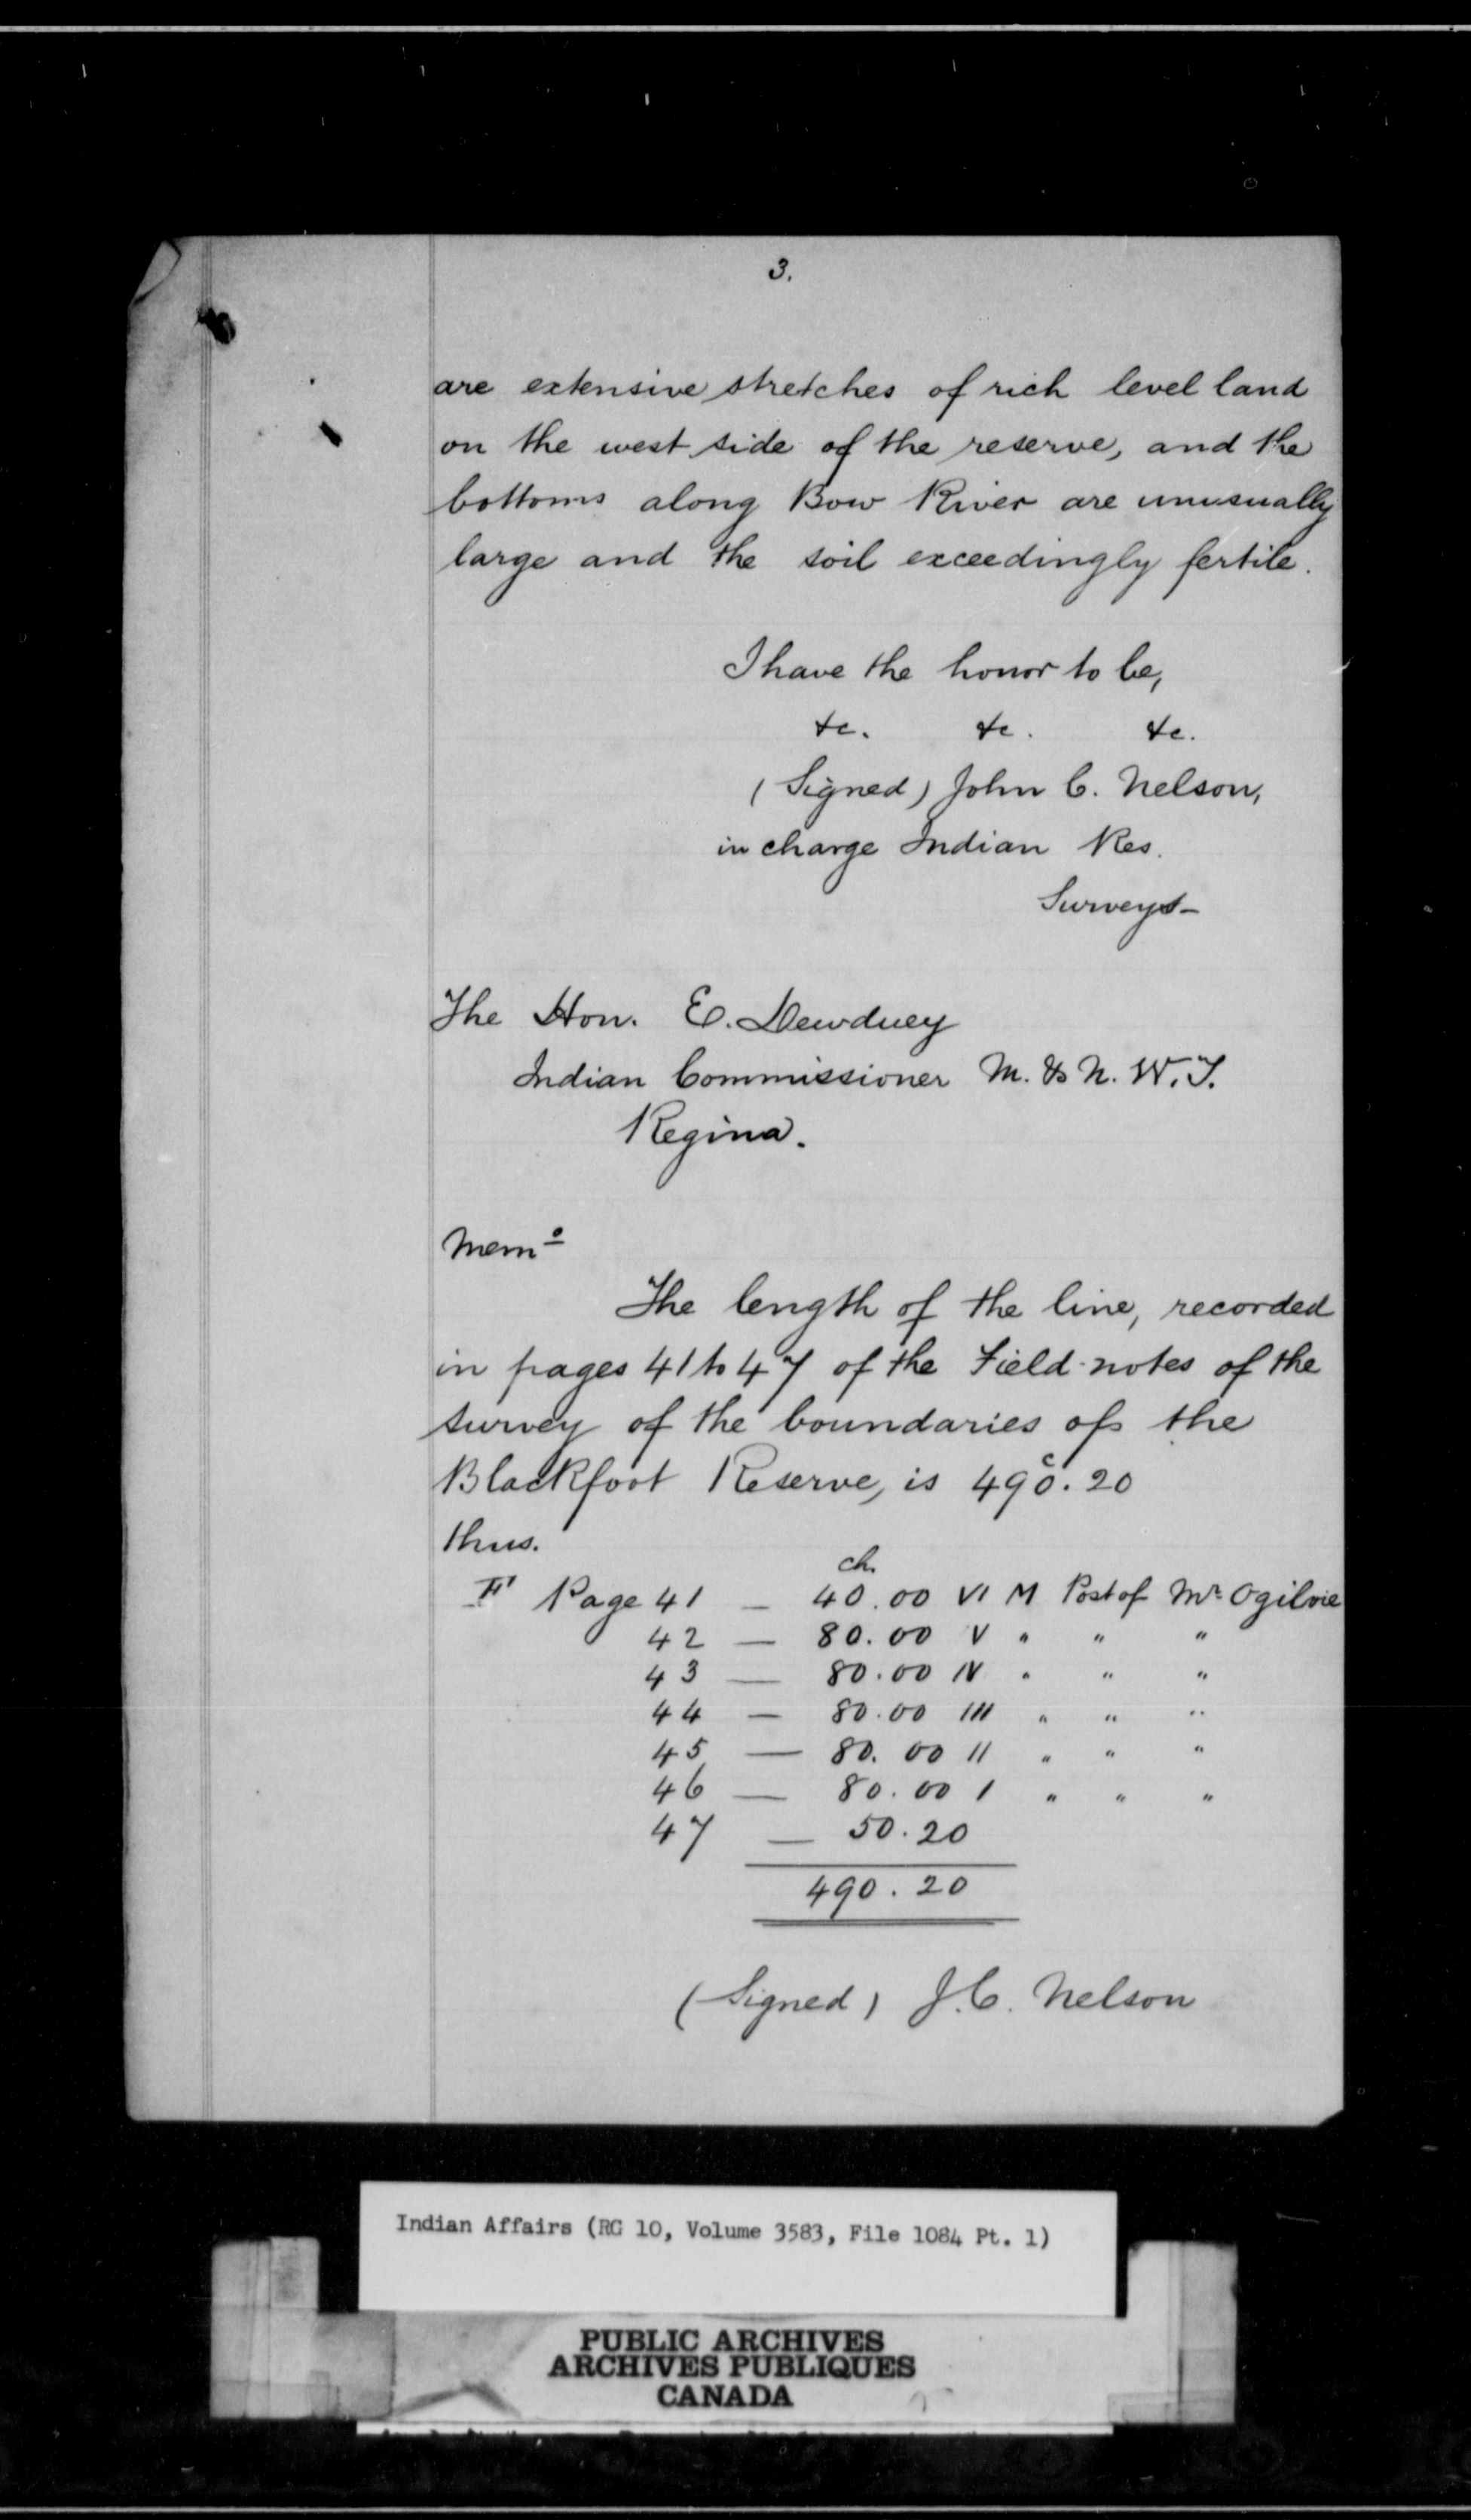 3.
are extensive stretches of rich level land
on the west side of the reserve, and the
bottoms along Bow River are unusually
large and the soil exceedingly fertile.
I have the honor to be,
&c. &c. &c.
(Signed) John C. Nelson,
in charge Indian Res.
Surveys -
The Hon. E. Dewdney
Indian Commissioner M. & N. W. T.
Regina.
Memo
The length of the line, recorded
in pages 41 to 47 of the Field-notes of the
survey of the boundaries of the
Blackfoot Reserve, is 490.20
c
thus.
ch.
Page 41 — 40.00 VI M Post of Mr Ogilvie
42 — 80.00 V " " "
43 — 80.00 IV " " "
44 — 80.00 III " " "
45 — 80.00 II " " "
46 — 80.00 I " " "
47 — 50.20
490.20
(Signed) J.C. Nelson
Indian Affairs (RG 10, Volume 3583, File 1084 Pt. 1)
PUBLIC ARCHIVES
ARCHIVES PUBLIQUES
CANADA